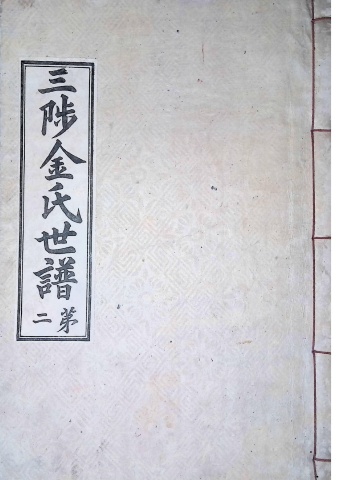 三陟金氏世譜
第二